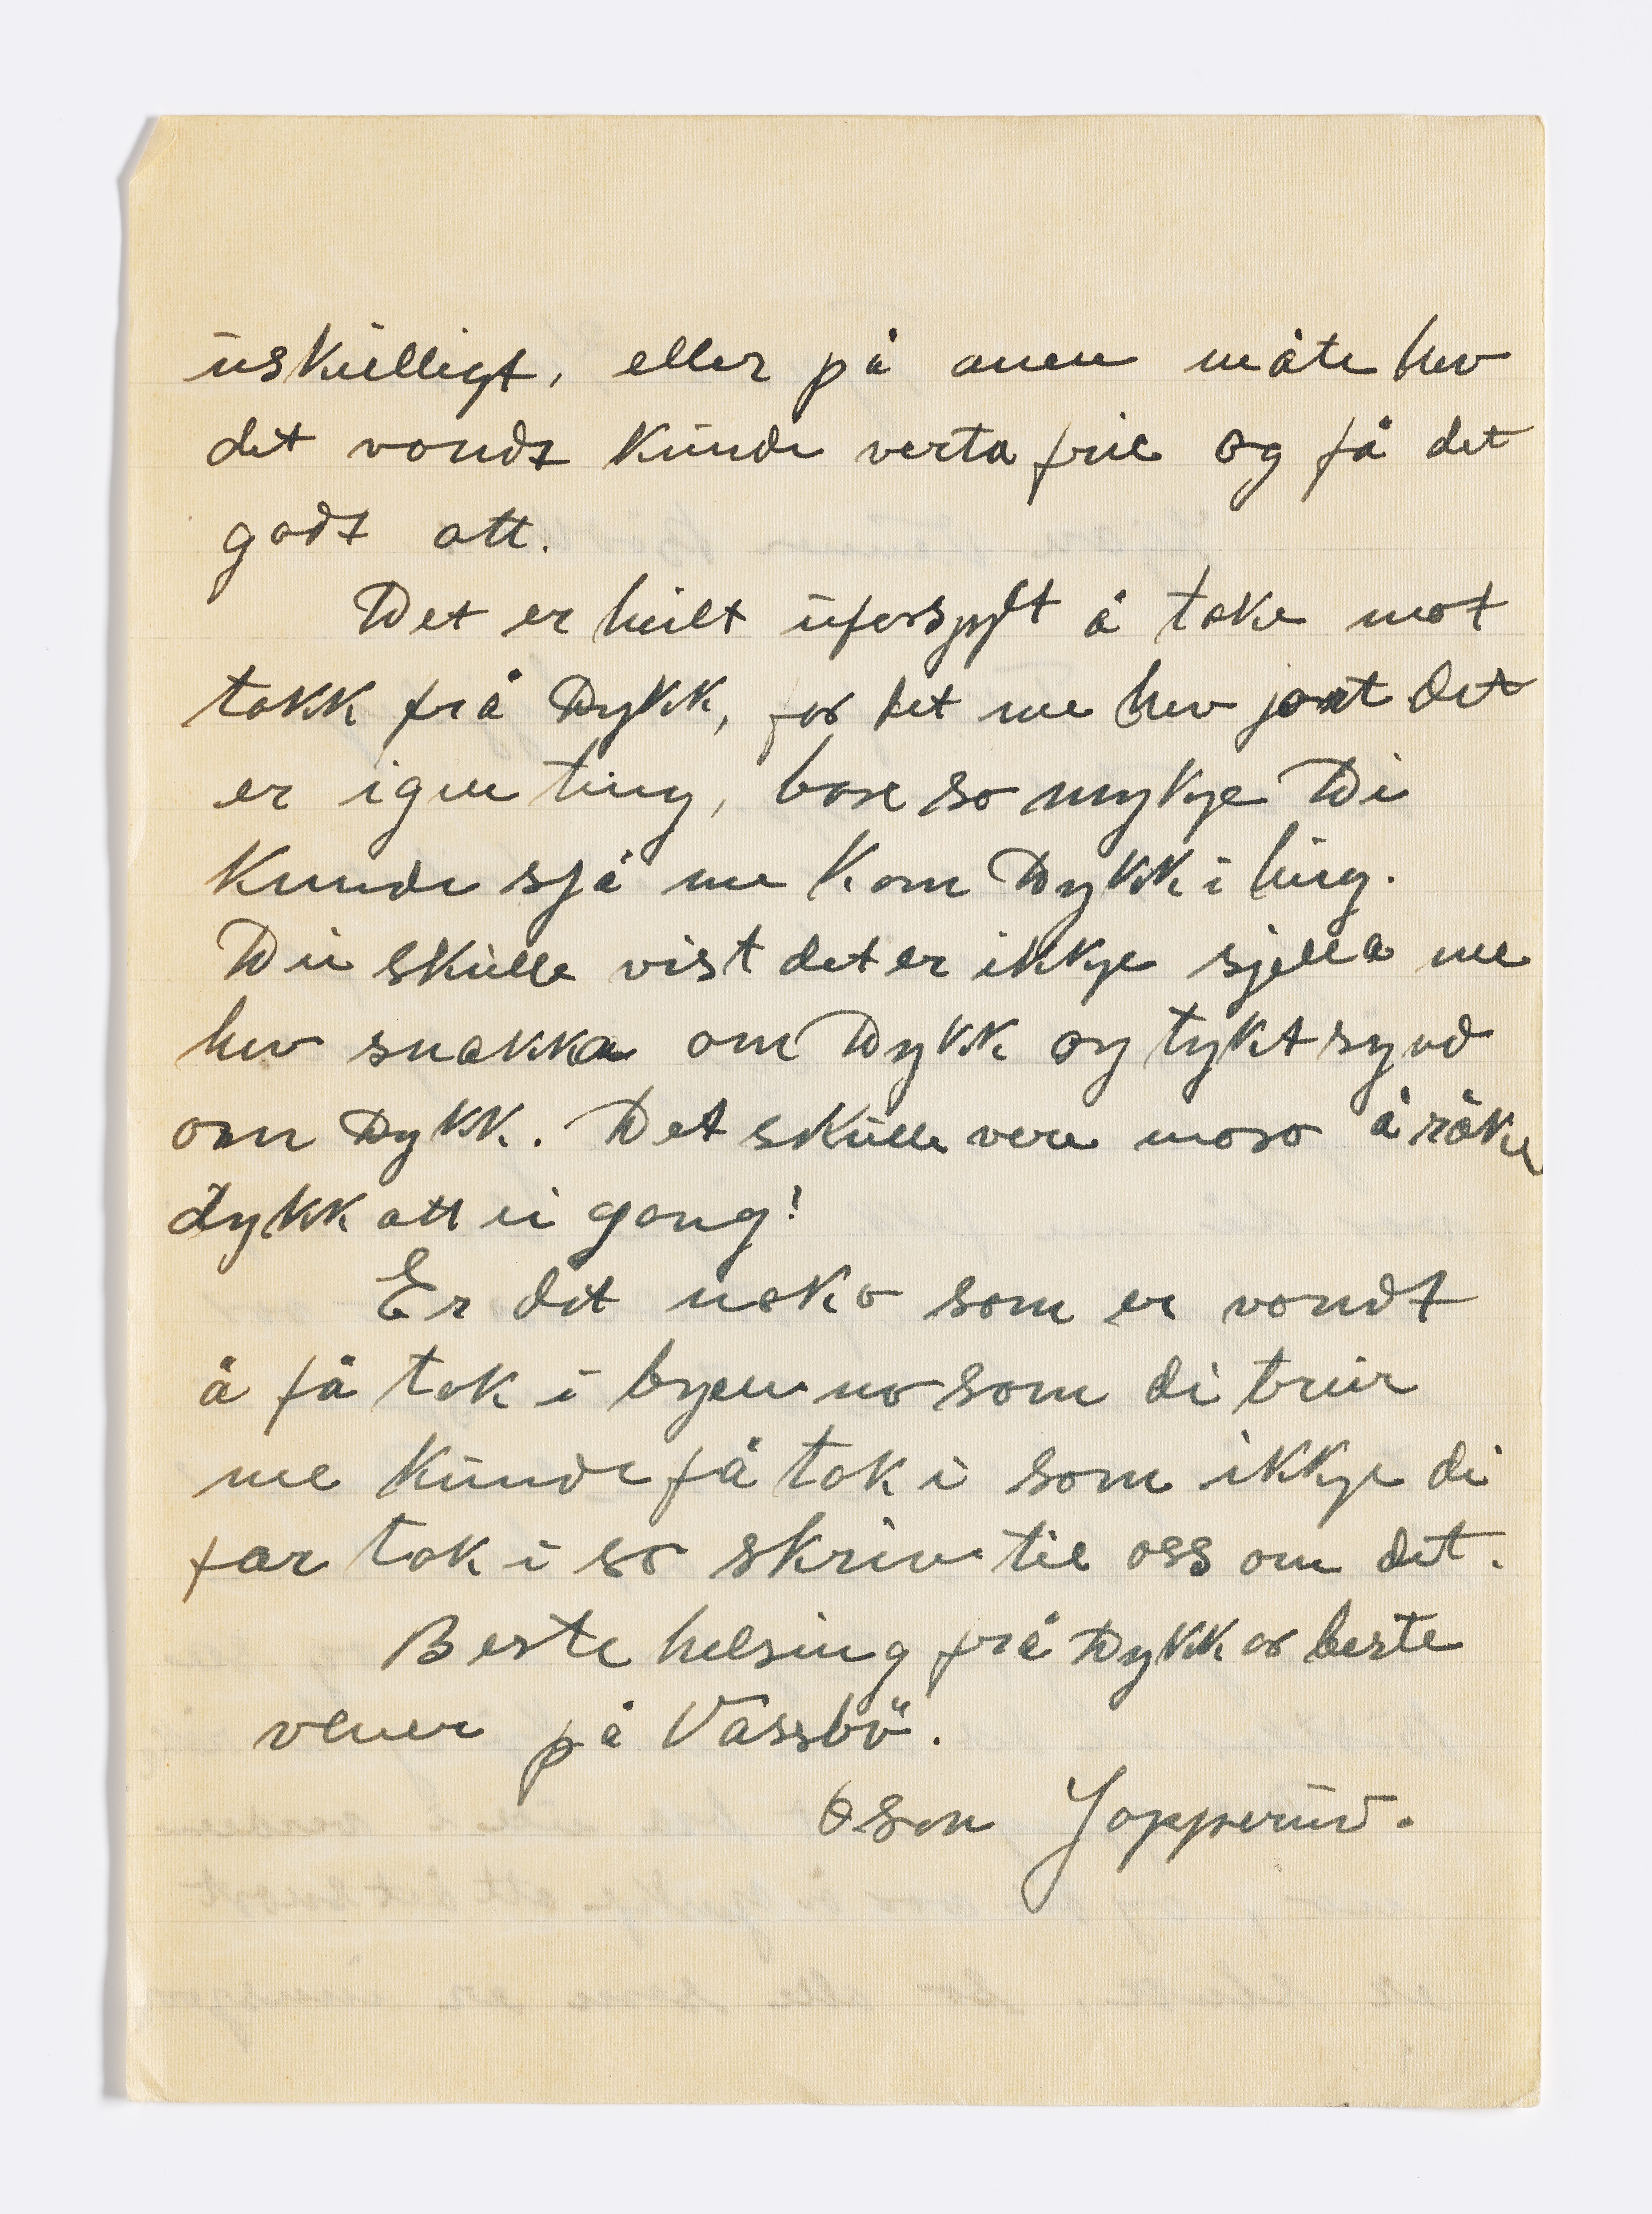 uskulligt, eller på anen måte hev
det vondt kunde verta frie og få det
godt att.
Det er heilt ufors å take mot
takk frå Dykk, for det me hev jort det
er igen ting, bare so mykje Di
kunde sjå me kom Dykk i hug.
Du skulle vist det er ikkje sjella me
hev snakka om Dykk og tykt synd
om Dykk. Det skulle vere moro å råke
dykk att ei gong!
Er det noko som er vondt
å få tak i byen no som di trur
me kunde få tak i som ikkje di
får tak i so skriv til oss om det.
Beste helsing frå Dykkar beste
vener på Vassbö.
Jopperud.